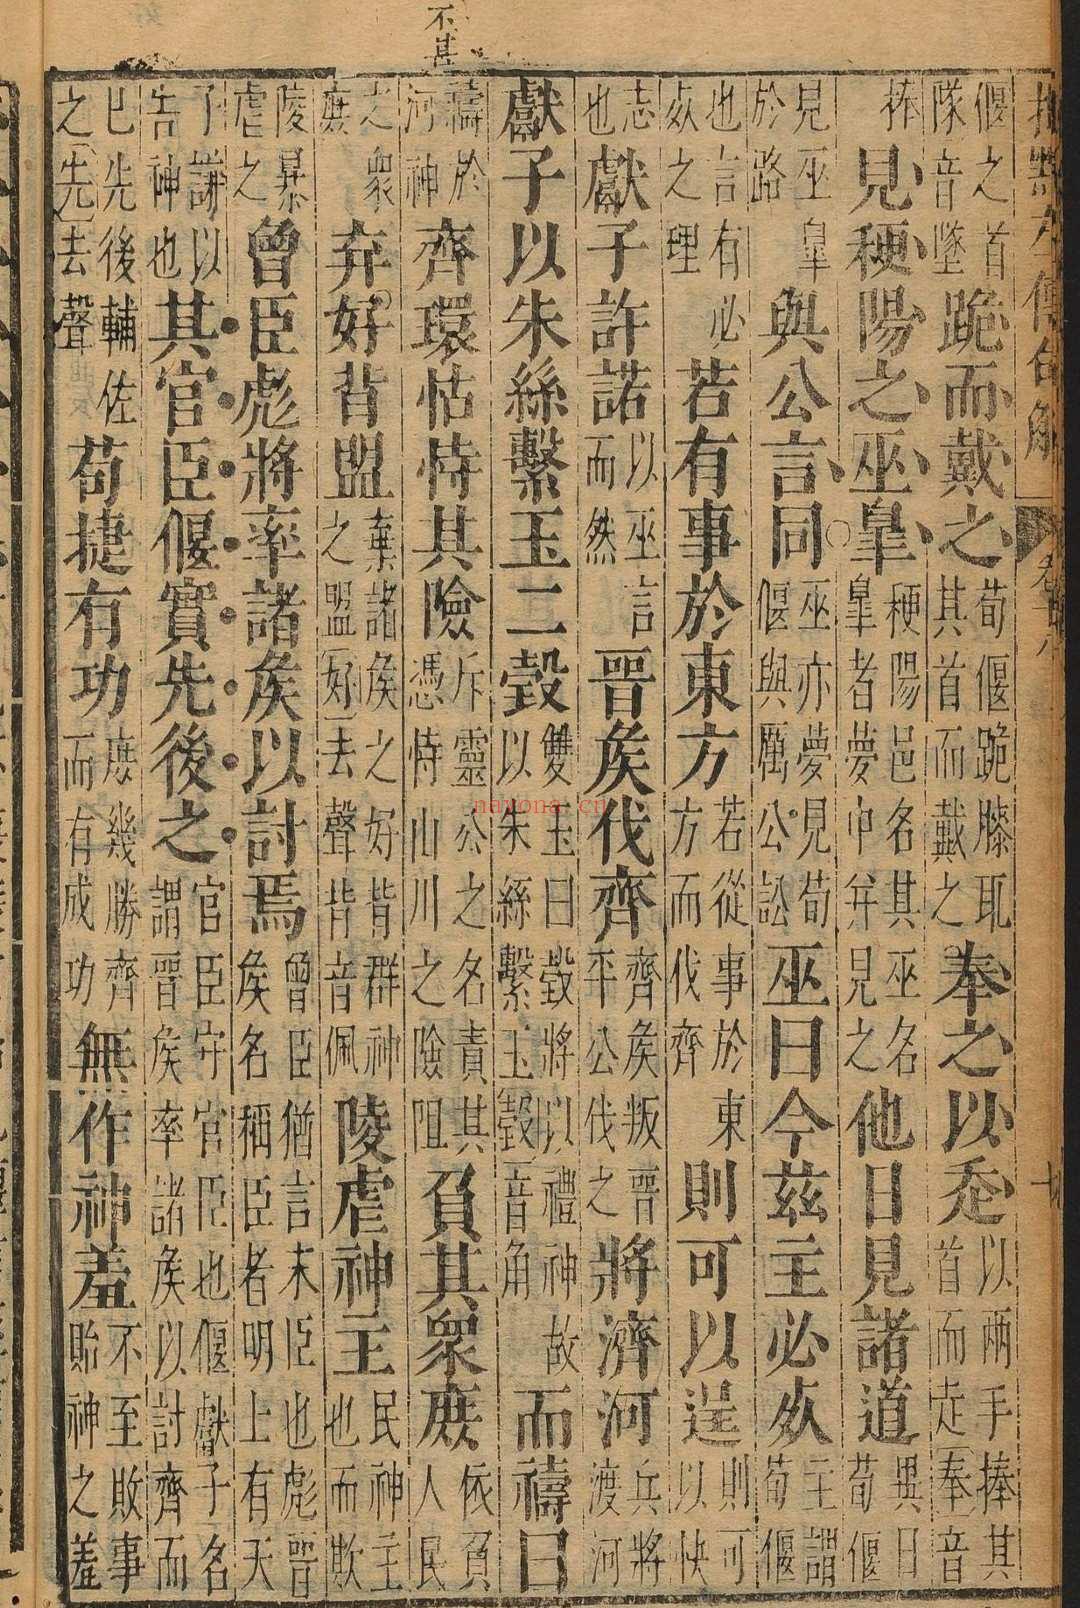 不甚
左傳句解
偃之首隊音墜跪而戴之荀偃跪膝耴其首而戴之奉之以走以兩手捧其首而走奉音
捧見梗陽之巫臯梗陽邑名其巫名臯者夢中并見之他日見諸道異日荀偃
見巫臯於路與公言同巫亦夢見荀偃與厲公訟巫曰今茲主必死主謂荀偃
也言有必死之理若有事於東方若從事於東方而伐齊則可以逞則可以快
志也獻子許諾以巫言而然晉侯伐齊齊侯叛晉平公伐之將濟河兵將渡河
獻子以朱絲繫玉二瑴雙玉曰瑴將以禮神故以朱絲繫玉瑴音角而禱曰
禱於河神齊環怙恃其險斥靈公之名責其憑恃山川之險阻負其衆庶依負人民
之衆庶弃好背盟棄諸侯之好背群神之盟好去聲背音佩陵虐神主民神主也而欺
陵暴虐之曾臣彪將率諸侯以討焉曾臣猶言末臣也彪晉侯名稱臣者明上有天
子謙以告神也其官臣偃實先後之官臣守官臣也偃獻子名謂晉侯率諸侯以討齊而
已先後輔佐之先去聲苟捷有功庶幾勝齊而有成功無作神羞不至敗事貽神之羞
nayona.cn